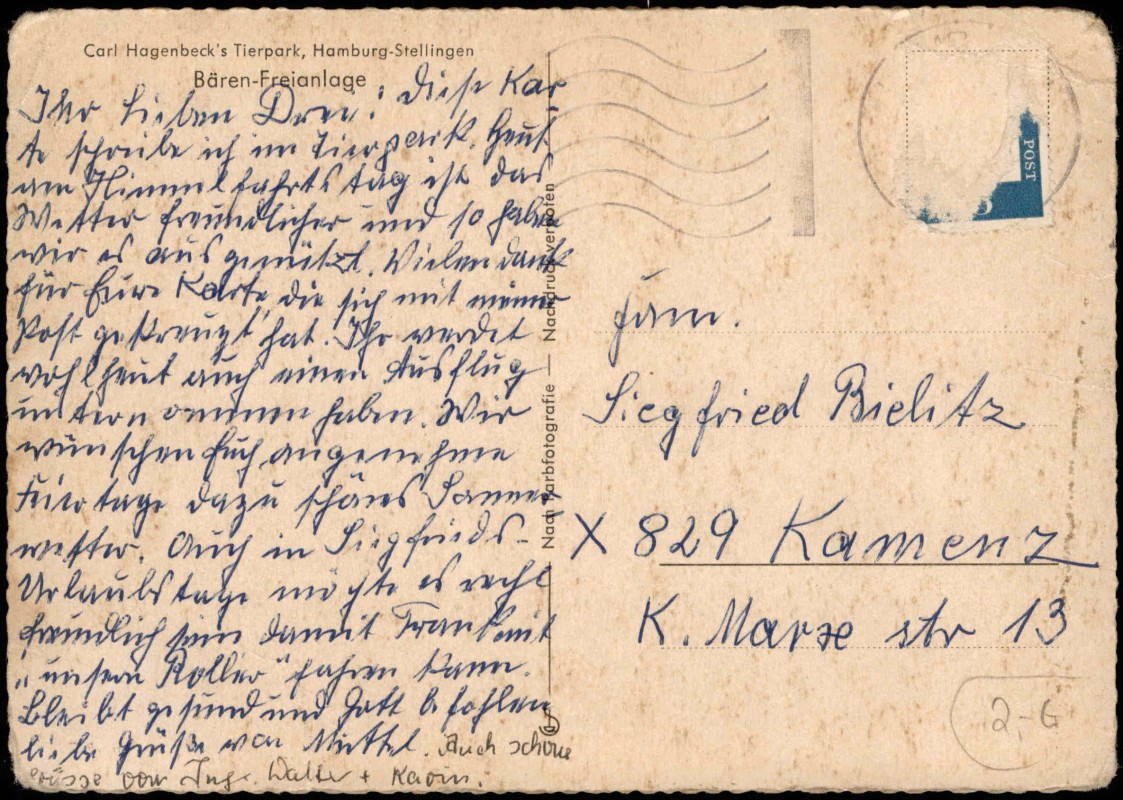 Carl Hagenbeck's Tierpark, Hamburg-Stellingen
Bären-Freianlage
Ihr lieben Drei! Diese Kar-
te schreibe ich im Tierpark. Heut
am Himmelfahrtstag ist das
Wetter freundlicher und so haben
wir es ausgenützt. Vielen Dank
für Eure Karte, die sich mit meiner
Post gekreuzt hat. Ihr werdet
wohl heut auch einen Ausflug
unternommen haben. Wir
wünschen Euch angenehme
Feiertage dazu schönes Sonnen-
wetter. Auch in Siegfrieds-
Urlaubstage möchte es recht
freundlich sein damit Frank mit
"unsern Roller" fahren kann.
Bleibt gesund und Gott befohlen
liebe Grüße von Muttel. Auch schöne
Grüsse von Ing. Walter + Karin.
Nach Farbfotografie — Nachdruck verboten
POST
Fam.
Siegfried Bielitz
X 829 Kamenz
K. Marxstr 13
2,-G